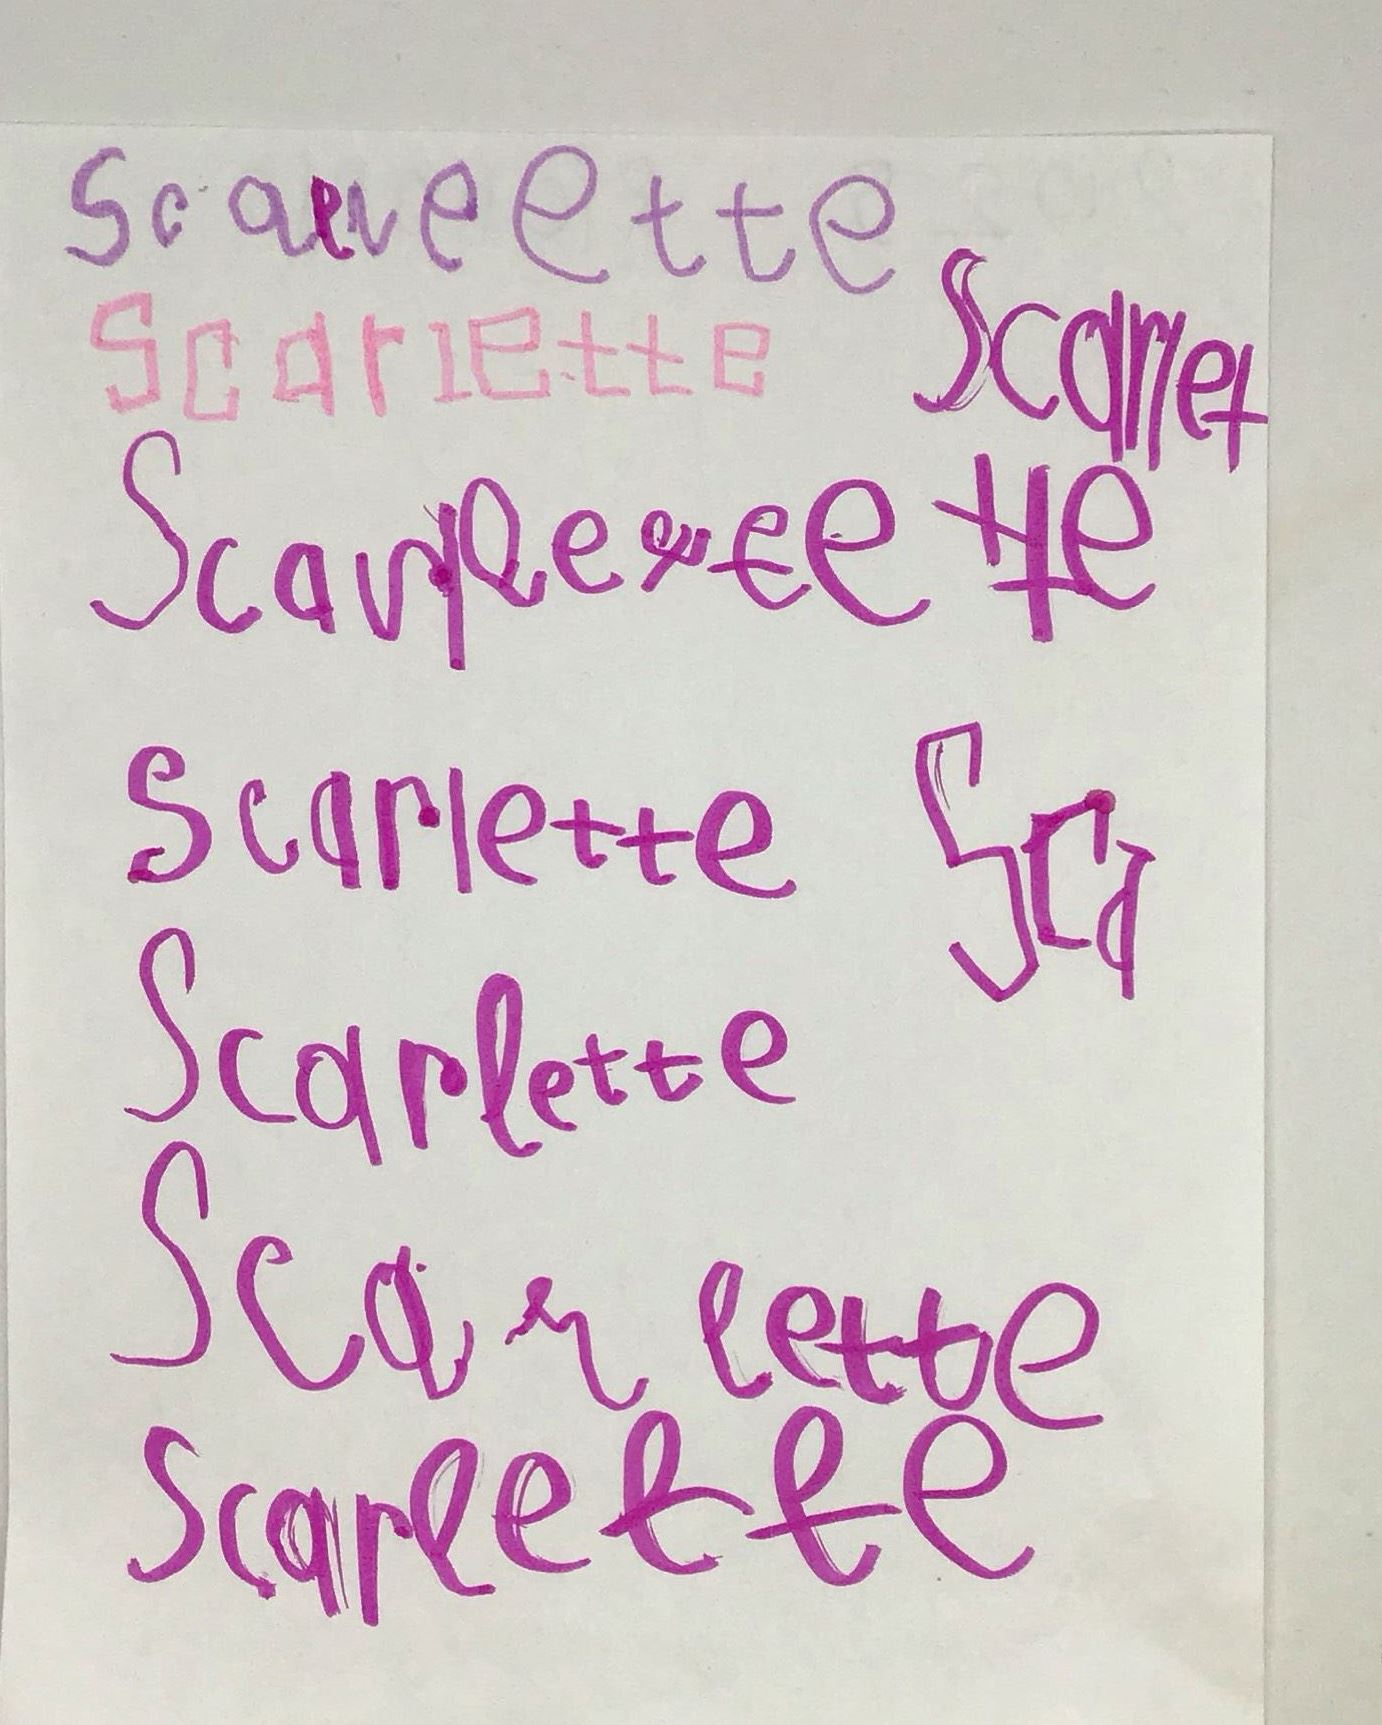 Scarlette
Scarlette
Scarlet
Scarlette
Scarlette
Sca
Scarlette
Scarlette
Scarlette